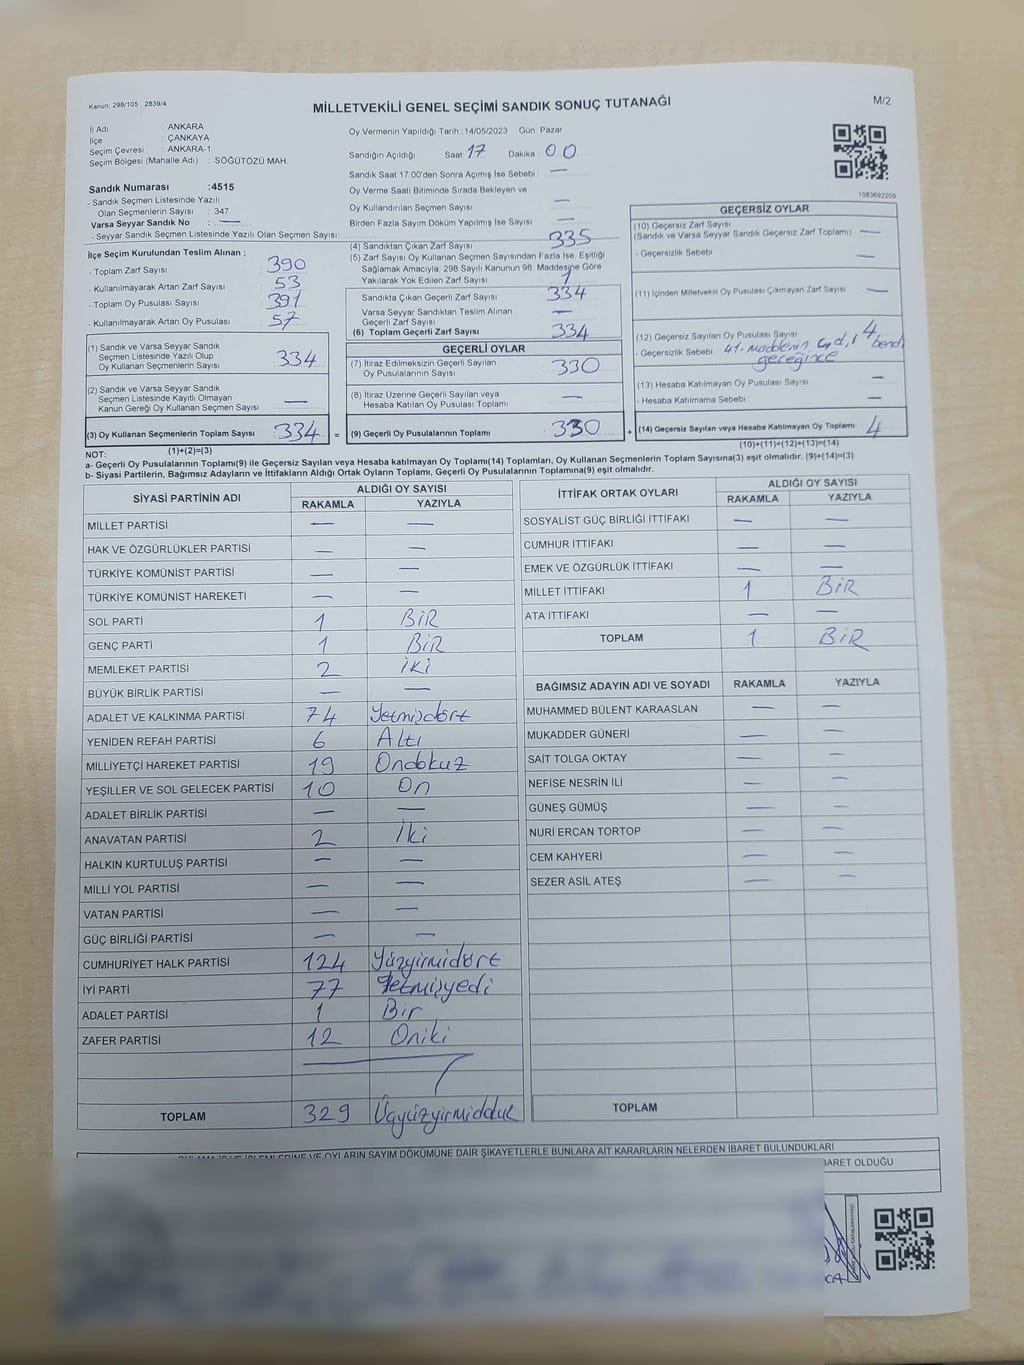 Kanun: 298/105 , 2839/4
MİLLETVEKİLİ GENEL SEÇİMİ SANDIK SONUÇ TUTANAĞI
M/2
İl Adı : ANKARA
İlçe : ÇANKAYA
Seçim Çevresi : ANKARA-1
Seçim Bölgesi (Mahalle Adı) : SÖĞÜTÖZÜ MAH.
Sandık Numarası :4515
- Sandık Seçmen Listesinde Yazılı
Olan Seçmenlerin Sayısı : 347
Varsa Seyyar Sandık No : —
- Seyyar Sandık Seçmen Listesinde Yazılı Olan Seçmen Sayısı:
Oy Vermenin Yapıldığı Tarih :14/05/2023 Gün: Pazar
Sandığın Açıldığı Saat 17 Dakika 00
Sandık Saat 17.00'den Sonra Açılmış İse Sebebi —
Oy Verme Saati Bitiminde Sırada Bekleyen ve
Oy Kullandırılan Seçmen Sayısı —
Birden Fazla Sayım Döküm Yapılmış İse Sayısı —
1083692209
İlçe Seçim Kurulundan Teslim Alınan ;
- Toplam Zarf Sayısı 390
- Kullanılmayarak Artan Zarf Sayısı 53
- Toplam Oy Pusulası Sayısı 391
- Kullanılmayarak Artan Oy Pusulası 57
(1) Sandık ve Varsa Seyyar Sandık
Seçmen Listesinde Yazılı Olup
Oy Kullanan Seçmenlerin Sayısı 334
(2) Sandık ve Varsa Seyyar Sandık
Seçmen Listesinde Kayıtlı Olmayan
Kanun Gereği Oy Kullanan Seçmen Sayısı —
(3) Oy Kullanan Seçmenlerin Toplam Sayısı 334 =
(1)+(2)=(3)
(4) Sandıktan Çıkan Zarf Sayısı 335
(5) Zarf Sayısı Oy Kullanan Seçmen Sayısından Fazla İse, Eşitliği
Sağlamak Amacıyla; 298 Sayılı Kanunun 98. Maddesine Göre
Yakılarak Yok Edilen Zarf Sayısı 1
Sandıkta Çıkan Geçerli Zarf Sayısı 334
Varsa Seyyar Sandıktan Teslim Alınan
Geçerli Zarf Sayısı —
(6) Toplam Geçerli Zarf Sayısı 334
GEÇERLİ OYLAR
(7) İtiraz Edilmeksizin Geçerli Sayılan
Oy Pusulalarının Sayısı 330
(8) İtiraz Üzerine Geçerli Sayılan veya
Hesaba Katılan Oy Pusulası Toplamı —
(9) Geçerli Oy Pusulalarının Toplamı 330 +
GEÇERSİZ OYLAR
(10) Geçersiz Zarf Sayısı
(Sandık ve Varsa Seyyar Sandık Geçersiz Zarf Toplamı) —
- Geçersizlik Sebebi —
(11) İçinden Milletvekili Oy Pusulası Çıkmayan Zarf Sayısı —
(12) Geçersiz Sayılan Oy Pusulası Sayısı 4
- Geçersizlik Sebebi 41. maddenin bendi
gereğince
(13) Hesaba Katılmayan Oy Pusulası Sayısı —
- Hesaba Katılmama Sebebi —
(14) Geçersiz Sayılan veya Hesaba Katılmayan Oy Toplamı 4
(10)+(11)+(12)+(13)=(14)
NOT:
a- Geçerli Oy Pusulalarının Toplamı(9) ile Geçersiz Sayılan veya Hesaba katılmayan Oy Toplamı(14) Toplamları, Oy Kullanan Seçmenlerin Toplam Sayısına(3) eşit olmalıdır. (9)+(14)=(3)
b- Siyasi Partilerin, Bağımsız Adayların ve İttifakların Aldığı Ortak Oyların Toplamı, Geçerli Oy Pusulalarının Toplamına(9) eşit olmalıdır.
SİYASİ PARTİNİN ADI ALDIĞI OY SAYISI
RAKAMLA YAZIYLA
MİLLET PARTİSİ — —
HAK VE ÖZGÜRLÜKLER PARTİSİ — —
TÜRKİYE KOMÜNİST PARTİSİ — —
TÜRKİYE KOMÜNİST HAREKETİ — —
SOL PARTİ 1 BİR
GENÇ PARTİ 1 BİR
MEMLEKET PARTİSİ 2 İKİ
BÜYÜK BİRLİK PARTİSİ — —
ADALET VE KALKINMA PARTİSİ 74 Yetmişdört
YENİDEN REFAH PARTİSİ 6 Altı
MİLLİYETÇİ HAREKET PARTİSİ 19 Ondokuz
YEŞİLLER VE SOL GELECEK PARTİSİ 10 On
ADALET BİRLİK PARTİSİ — —
ANAVATAN PARTİSİ 2 İki
HALKIN KURTULUŞ PARTİSİ — —
MİLLİ YOL PARTİSİ — —
VATAN PARTİSİ — —
GÜÇ BİRLİĞİ PARTİSİ — —
CUMHURİYET HALK PARTİSİ 124 Yüzyirmidört
İYİ PARTİ 77 Yetmişyedi
ADALET PARTİSİ 1 Bir
ZAFER PARTİSİ 12 Oniki
TOPLAM 329 Üçyüzyirmidokuz
İTTİFAK ORTAK OYLARI ALDIĞI OY SAYISI
RAKAMLA YAZIYLA
SOSYALİST GÜÇ BİRLİĞİ İTTİFAKI — —
CUMHUR İTTİFAKI — —
EMEK VE ÖZGÜRLÜK İTTİFAKI — —
MİLLET İTTİFAKI 1 BİR
ATA İTTİFAKI — —
TOPLAM 1 BİR
BAĞIMSIZ ADAYIN ADI VE SOYADI RAKAMLA YAZIYLA
MUHAMMED BÜLENT KARAASLAN — —
MUKADDER GÜNERİ — —
SAİT TOLGA OKTAY — —
NEFİSE NESRİN İLİ — —
GÜNEŞ GÜMÜŞ — —
NURİ ERCAN TORTOP — —
CEM KAHYERİ — —
SEZER ASİL ATEŞ — —
TOPLAM
VE OYLARIN SAYIM DÖKÜMÜNE DAİR ŞİKAYETLERLE BUNLARA AİT KARARLARIN NELERDEN İBARET BULUNDUKLARI
İBARET OLDUĞU